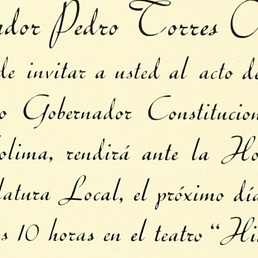 ador Pedro Torres O
de invitar a usted al acto de
o Gobernador Constitucion
olima, rendirá ante la Ho
latura Local, el próximo día
s 10 horas en el teatro “Hi